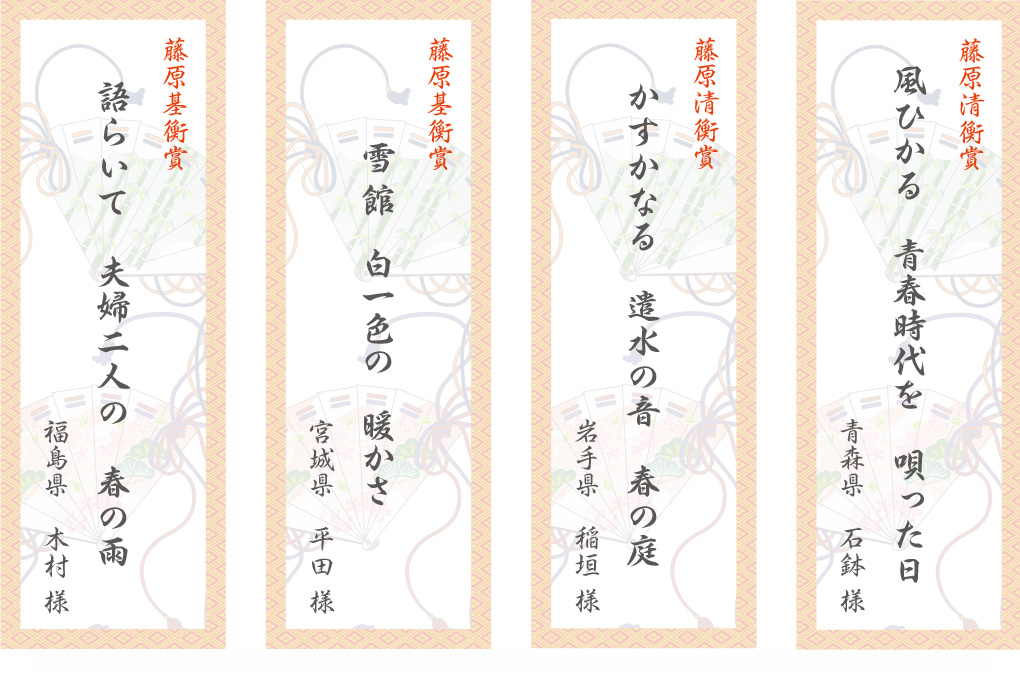 藤原清衡賞
風ひかる　青春時代を　唄った日
青森県　石鉢 様
藤原清衡賞
かすかなる　遣水の音　春の庭
岩手県　稲垣 様
藤原基衡賞
雪館　白一色の　暖かさ
宮城県　平田 様
藤原基衡賞
語らいて　夫婦二人の　春の雨
福島県　木村 様